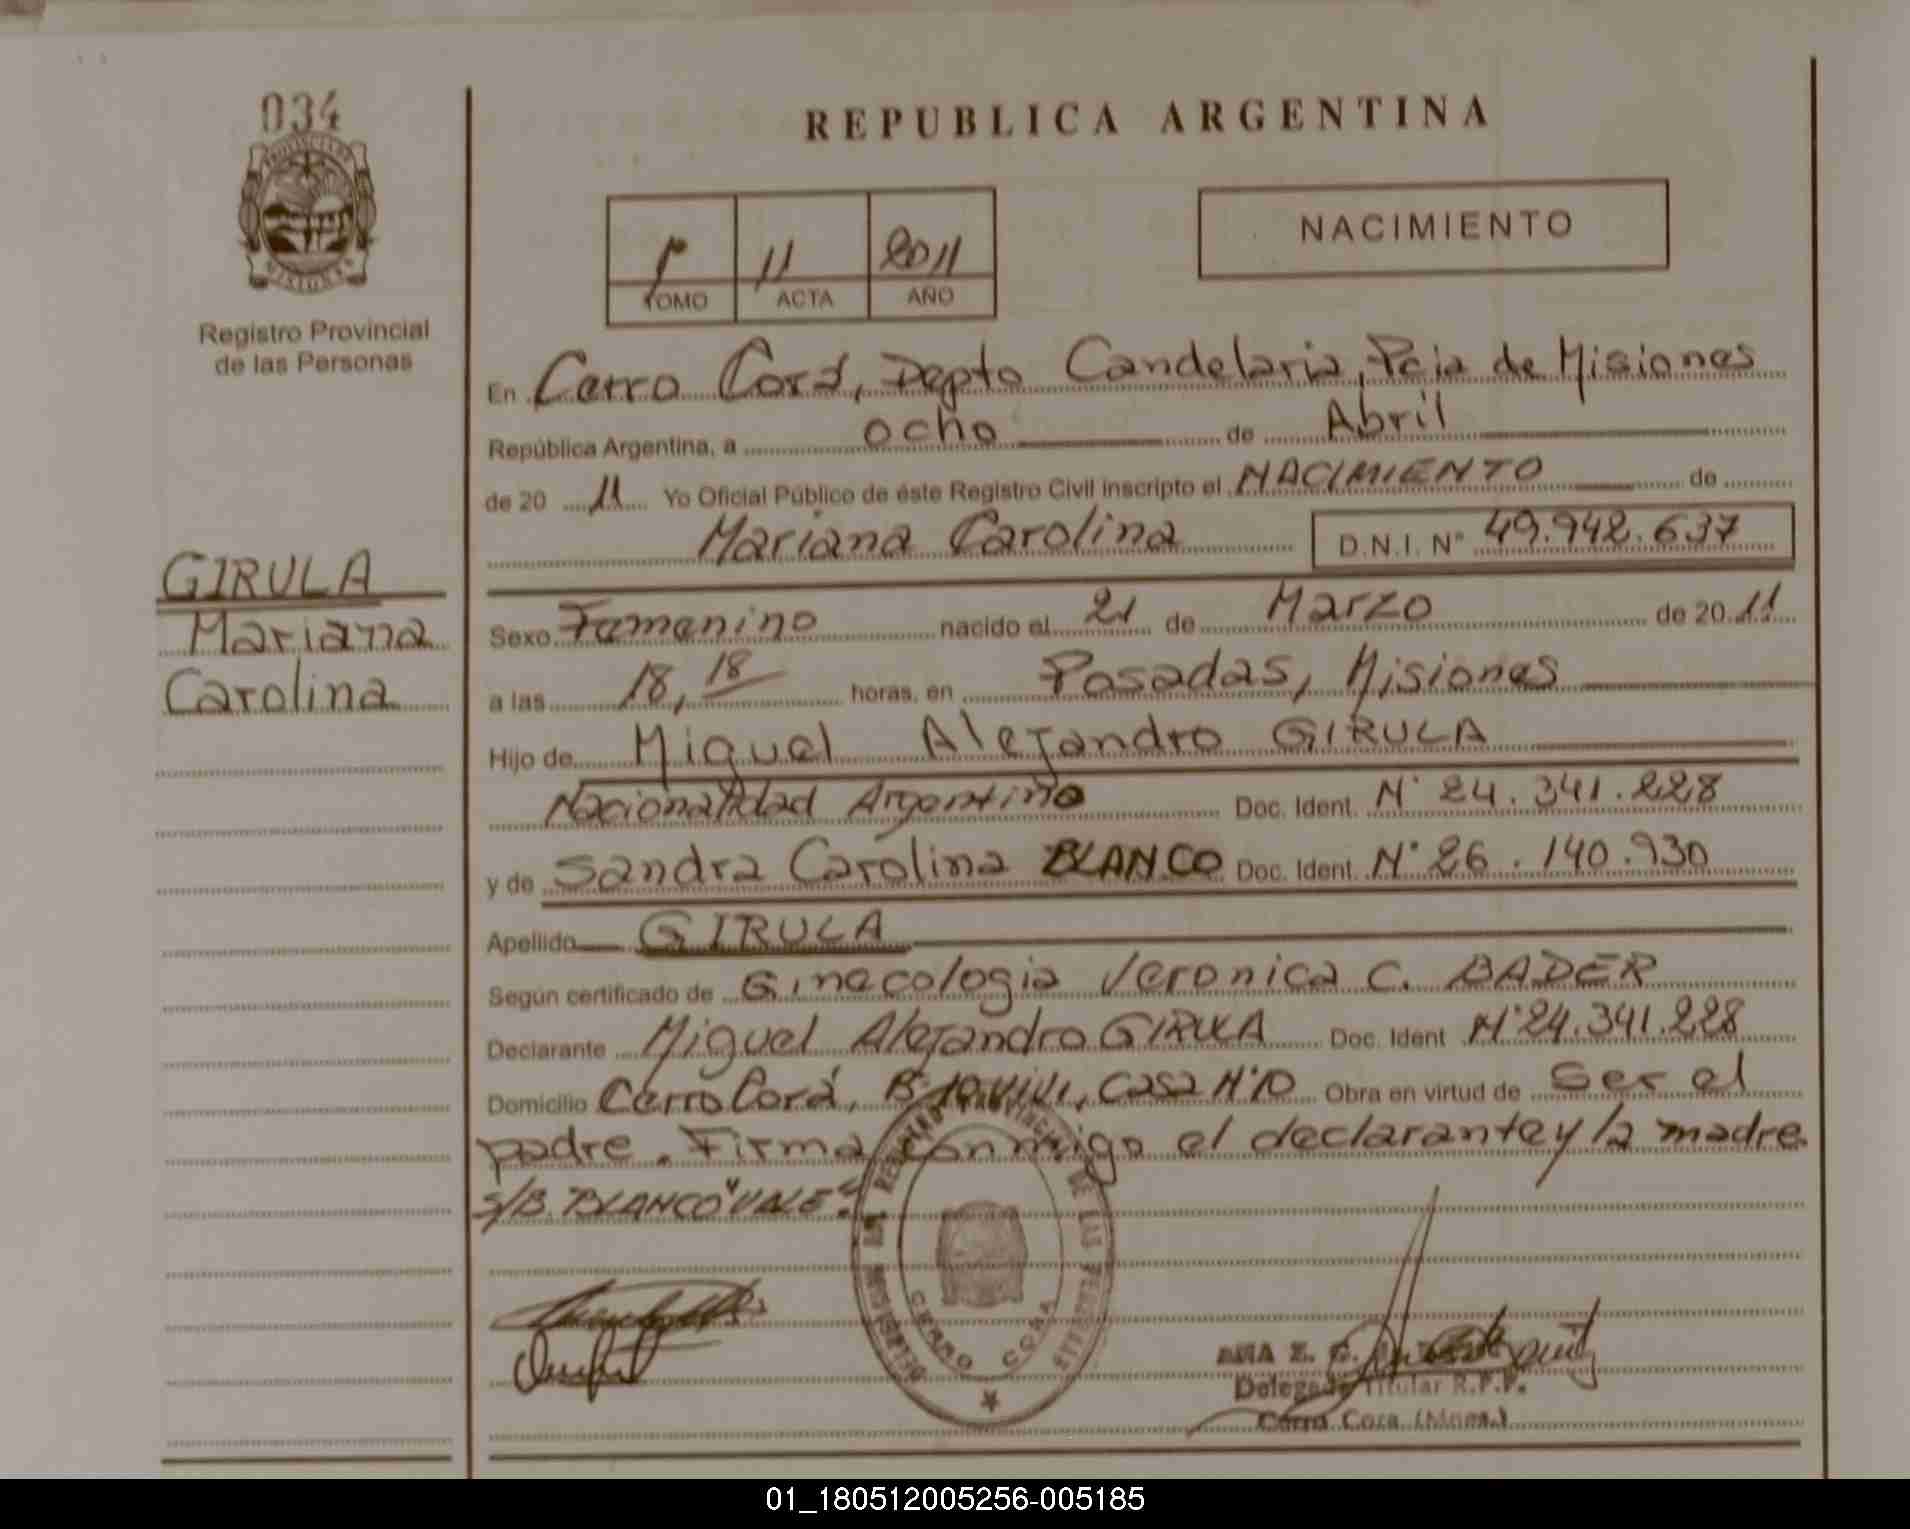 034
PROVINCIA DE
MISIONES
Registro Provincial
de las Personas
GIRULA
Mariana
Carolina
REPUBLICA ARGENTINA
1º 11 2011
TOMO ACTA AÑO
NACIMIENTO
En Cerro Corá, Depto Candelaria, Pcia de Misiones
República Argentina, a ocho de Abril
de 20 11 Yo Oficial Público de éste Registro Civil inscripto el NACIMIENTO de
Mariana Carolina D.N.I. Nº 49.942.637
Sexo Femenino nacido el 21 de Marzo de 20 11
a las 18,18 horas, en Posadas, Misiones
Hijo de Miguel Alejandro GIRULA
Nacionalidad Argentino Doc. Ident. Nº 24.341.228
y de Sandra Carolina BLANCO Doc. Ident. Nº 26.140.930
Apellido GIRULA
Según certificado de Ginecologia Veronica C. BADER
Declarante Miguel Alejandro GIRULA Doc. Ident Nº 24.341.228
Domicilio Cerro Corá, Bº Casa Nº 10 Obra en virtud de Ser el
padre. Firma conmigo el declarante y la madre.
S/B. BLANCO "VALE".
REGISTRO PROVINCIAL DE LAS PERSONAS
CERRO CORA
ANA E. G.
Delegada Titular R.P.P.
Cerro Cora (Mnes.)
01_180512005256-005185